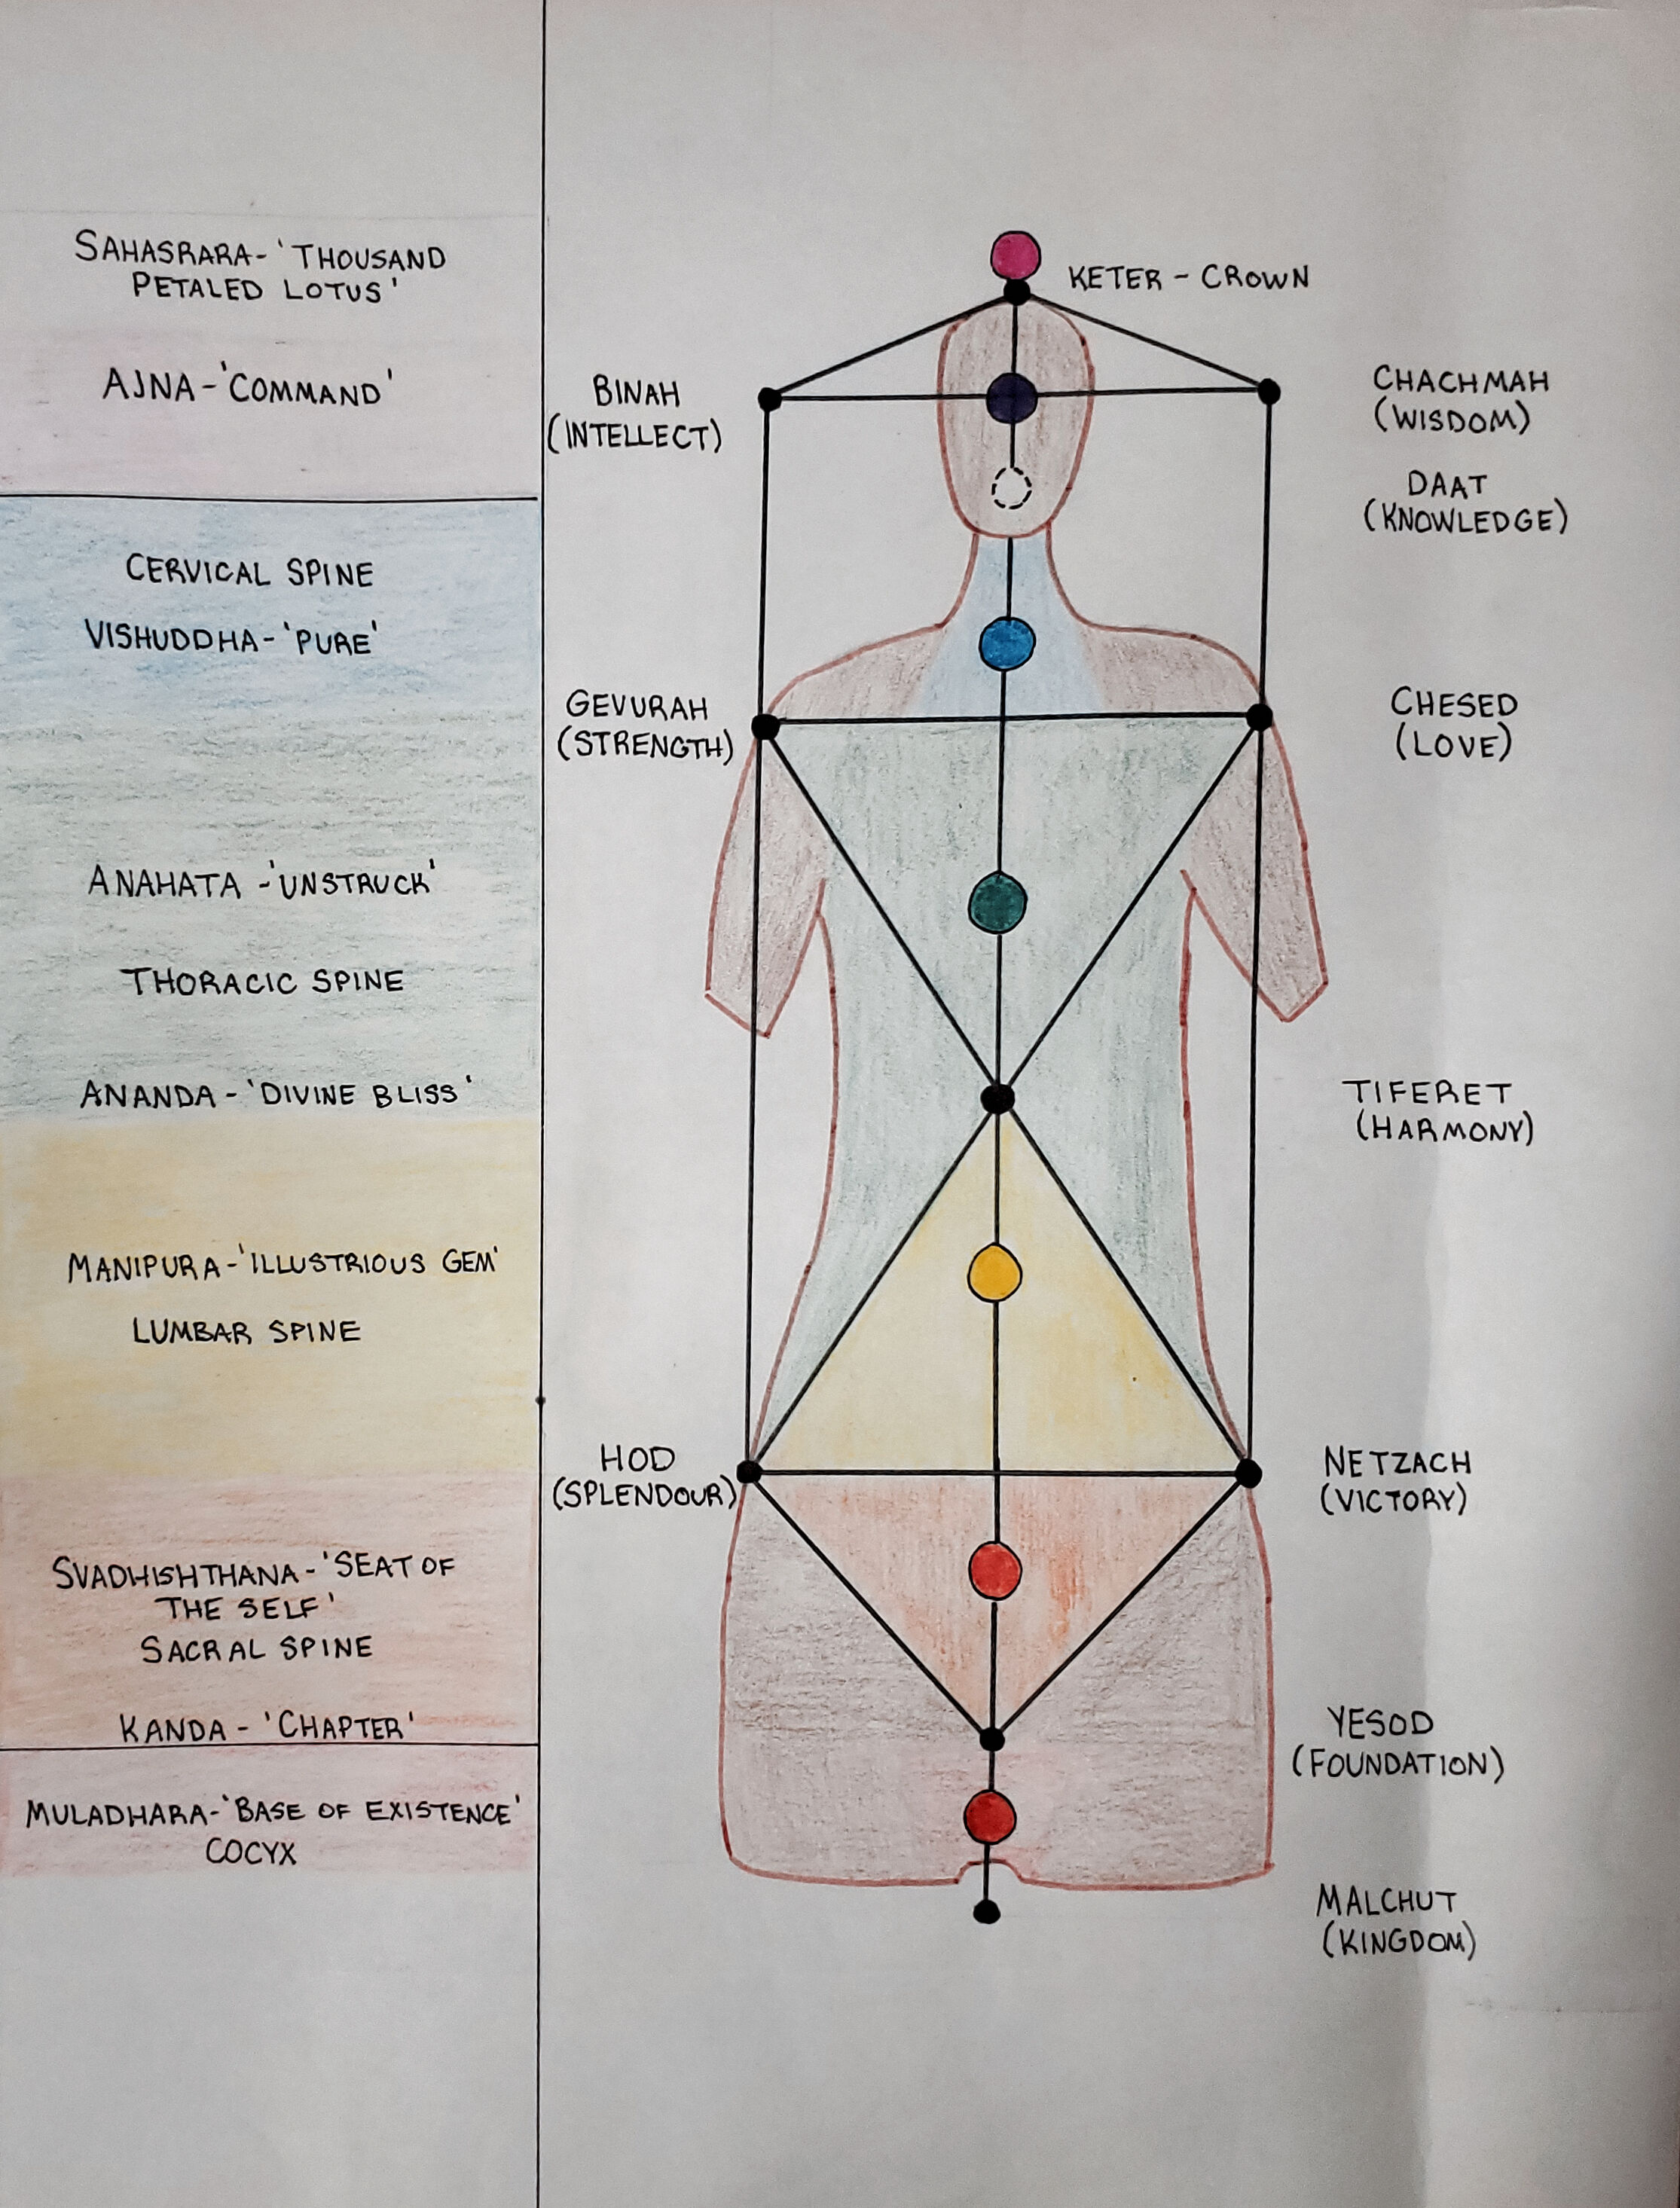 SAHASRARA- 'THOUSAND
PETALED LOTUS'
AJNA-'COMMAND'
CERVICAL SPINE
VISHUDDHA-'PURE'
ANAHATA -'UNSTRUCK'
THORACIC SPINE
ANANDA-'DIVINE BLISS'
MANIPURA-'ILLUSTRIOUS GEM'
LUMBAR SPINE
SVADHISHTHANA-'SEAT OF
THE SELF'
SACRAL SPINE
KANDA - 'CHAPTER'
MULADHARA-'BASE OF EXISTENCE'
COCYX
KETER - CROWN
BINAH
(INTELLECT)
CHACHMAH
(WISDOM)
DAAT
(KNOWLEDGE)
GEVURAH
(STRENGTH)
CHESED
(LOVE)
TIFERET
(HARMONY)
HOD
(SPLENDOUR)
NETZACH
(VICTORY)
YESOD
(FOUNDATION)
MALCHUT
(KINGDOM)